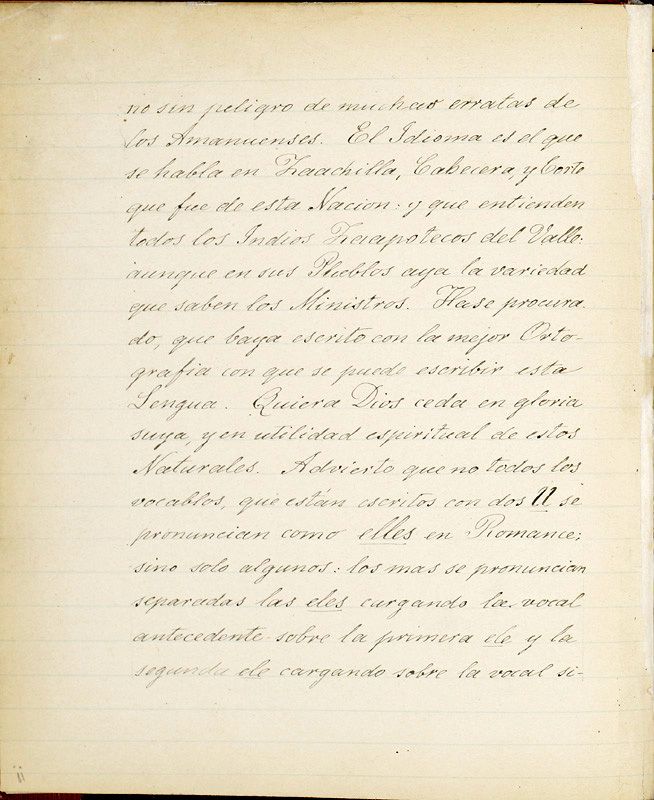 no sin peligro de muchas erratas de
los Amanuenses. El Idioma es el que
se habla en Zaachilla, Cabecera, y Corte
que fue de esta Nacion: y que entienden
todos los Indios Zaapotecos del Valle:
aunque en sus Pueblos aya la variedad
que saben los Ministros. Hase procura-
do, que baya escrito con la mejor Orto-
grafia con que se puede escribir esta
Lengua. Quiera Dios ceda en gloria
suya, y en utilidad espiritual de estos
Naturales. Advierto que no todos los
vocablos, que están escritos con dos ll se
pronuncian como elles en Romance;
sino solo algunos: los mas se pronuncian
separadas las eles cargando la vocal
antecedente sobre la primera ele y la
segunda ele cargando sobre la vocal si-
ii